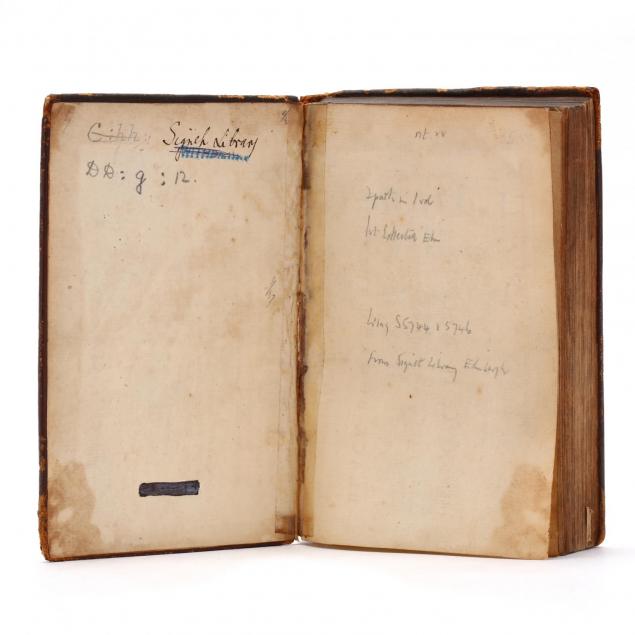 Signet Library
DD: g : 12.
2 parts in 1 vol
1st Collected Edn
Wing S5744 & S5746
From Signet Library Edinburgh